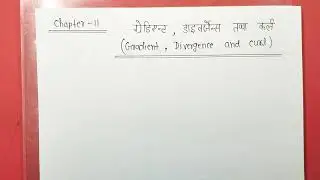 Chapter - 11
ग्रेडिएन्ट , डाइवर्जेन्स तथा कर्ल
(Gradient , Divergence and curl)